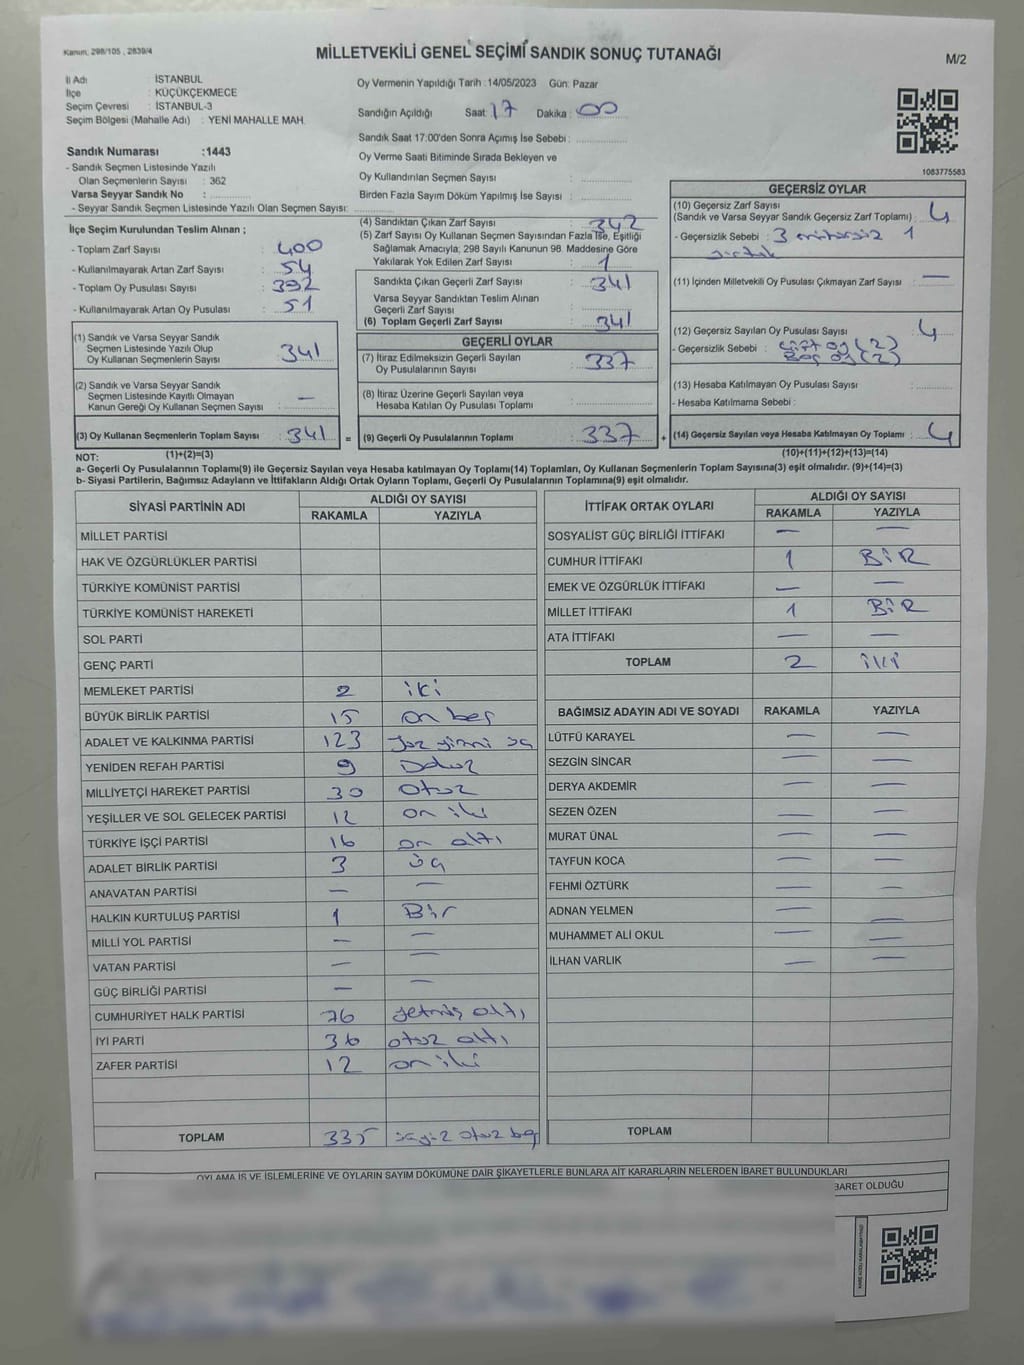 Kanun, 298/105 , 2839/4
MİLLETVEKİLİ GENEL SEÇİMİ SANDIK SONUÇ TUTANAĞI
M/2
İl Adı : İSTANBUL
İlçe : KÜÇÜKÇEKMECE
Seçim Çevresi : İSTANBUL-3
Seçim Bölgesi (Mahalle Adı) : YENİ MAHALLE MAH.
Oy Vermenin Yapıldığı Tarih :14/05/2023 Gün: Pazar
Sandığın Açıldığı Saat: 17 Dakika : 00
Sandık Saat 17:00'den Sonra Açımış İse Sebebi :
Oy Verme Saati Bitiminde Sırada Bekleyen ve
Oy Kullandırılan Seçmen Sayısı :
Birden Fazla Sayım Döküm Yapılmış İse Sayısı :
Sandık Numarası :1443
- Sandık Seçmen Listesinde Yazılı
Olan Seçmenlerin Sayısı : 362
Varsa Seyyar Sandık No :
- Seyyar Sandık Seçmen Listesinde Yazılı Olan Seçmen Sayısı:
İlçe Seçim Kurulundan Teslim Alınan ;
- Toplam Zarf Sayısı : 400
- Kullanılmayarak Artan Zarf Sayısı : 54
- Toplam Oy Pusulası Sayısı : 392
- Kullanılmayarak Artan Oy Pusulası : 51
(1) Sandık ve Varsa Seyyar Sandık
Seçmen Listesinde Yazılı Olup
Oy Kullanan Seçmenlerin Sayısı : 341
(2) Sandık ve Varsa Seyyar Sandık
Seçmen Listesinde Kayıtlı Olmayan
Kanun Gereği Oy Kullanan Seçmen Sayısı : —
(3) Oy Kullanan Seçmenlerin Toplam Sayısı : 341 =
(4) Sandıktan Çıkan Zarf Sayısı : 342
(5) Zarf Sayısı Oy Kullanan Seçmen Sayısından Fazla İse, Eşitliği
Sağlamak Amacıyla; 298 Sayılı Kanunun 98. Maddesine Göre
Yakılarak Yok Edilen Zarf Sayısı : 1
Sandıkta Çıkan Geçerli Zarf Sayısı : 341
Varsa Seyyar Sandıktan Teslim Alınan
Geçerli Zarf Sayısı :
(6) Toplam Geçerli Zarf Sayısı : 341
GEÇERLİ OYLAR
(7) İtiraz Edilmeksizin Geçerli Sayılan
Oy Pusulalarının Sayısı : 337
(8) İtiraz Üzerine Geçerli Sayılan veya
Hesaba Katılan Oy Pusulası Toplamı :
(9) Geçerli Oy Pusulalarının Toplamı : 337 +
1083775583
GEÇERSİZ OYLAR
(10) Geçersiz Zarf Sayısı
(Sandık ve Varsa Seyyar Sandık Geçersiz Zarf Toplamı) : 4
- Geçersizlik Sebebi : 3 mühürsüz 1
(11) İçinden Milletvekili Oy Pusulası Çıkmayan Zarf Sayısı : —
(12) Geçersiz Sayılan Oy Pusulası Sayısı : 4
- Geçersizlik Sebebi : Çift oy (2)
Boş oy (2)
(13) Hesaba Katılmayan Oy Pusulası Sayısı :
- Hesaba Katılmama Sebebi :
(14) Geçersiz Sayılan veya Hesaba Katılmayan Oy Toplamı : 4
NOT: (1)+(2)=(3) (10)+(11)+(12)+(13)=(14)
a- Geçerli Oy Pusulalarının Toplamı(9) ile Geçersiz Sayılan veya Hesaba katılmayan Oy Toplamı(14) Toplamları, Oy Kullanan Seçmenlerin Toplam Sayısına(3) eşit olmalıdır. (9)+(14)=(3)
b- Siyasi Partilerin, Bağımsız Adayların ve İttifakların Aldığı Ortak Oyların Toplamı, Geçerli Oy Pusulalarının Toplamına(9) eşit olmalıdır.
SİYASİ PARTİNİN ADI ALDIĞI OY SAYISI
RAKAMLA YAZIYLA
MİLLET PARTİSİ
HAK VE ÖZGÜRLÜKLER PARTİSİ
TÜRKİYE KOMÜNİST PARTİSİ
TÜRKİYE KOMÜNİST HAREKETİ
SOL PARTİ
GENÇ PARTİ
MEMLEKET PARTİSİ 2 iki
BÜYÜK BİRLİK PARTİSİ 15 on beş
ADALET VE KALKINMA PARTİSİ 123 yüz yirmi üç
YENİDEN REFAH PARTİSİ 9 Dokuz
MİLLİYETÇİ HAREKET PARTİSİ 30 otuz
YEŞİLLER VE SOL GELECEK PARTİSİ 12 on iki
TÜRKİYE İŞÇİ PARTİSİ 16 on altı
ADALET BİRLİK PARTİSİ 3 üç
ANAVATAN PARTİSİ — —
HALKIN KURTULUŞ PARTİSİ 1 Bir
MİLLİ YOL PARTİSİ — —
VATAN PARTİSİ — —
GÜÇ BİRLİĞİ PARTİSİ — —
CUMHURİYET HALK PARTİSİ 76 yetmiş altı
İYİ PARTİ 36 otuz altı
ZAFER PARTİSİ 12 on iki
TOPLAM 335 üçyüz otuz beş
İTTİFAK ORTAK OYLARI ALDIĞI OY SAYISI
RAKAMLA YAZIYLA
SOSYALİST GÜÇ BİRLİĞİ İTTİFAKI — —
CUMHUR İTTİFAKI 1 BİR
EMEK VE ÖZGÜRLÜK İTTİFAKI — —
MİLLET İTTİFAKI 1 BİR
ATA İTTİFAKI — —
TOPLAM 2 iki
BAĞIMSIZ ADAYIN ADI VE SOYADI RAKAMLA YAZIYLA
LÜTFÜ KARAYEL — —
SEZGİN SİNCAR — —
DERYA AKDEMİR — —
SEZEN ÖZEN — —
MURAT ÜNAL — —
TAYFUN KOCA — —
FEHMİ ÖZTÜRK — —
ADNAN YELMEN — —
MUHAMMET ALİ OKUL — —
İLHAN VARLIK — —
TOPLAM
OYLAMA İŞ VE İŞLEMLERİNE VE OYLARIN SAYIM DÖKÜMÜNE DAİR ŞİKAYETLERLE BUNLARA AİT KARARLARIN NELERDEN İBARET BULUNDUKLARI
BARET OLDUĞU